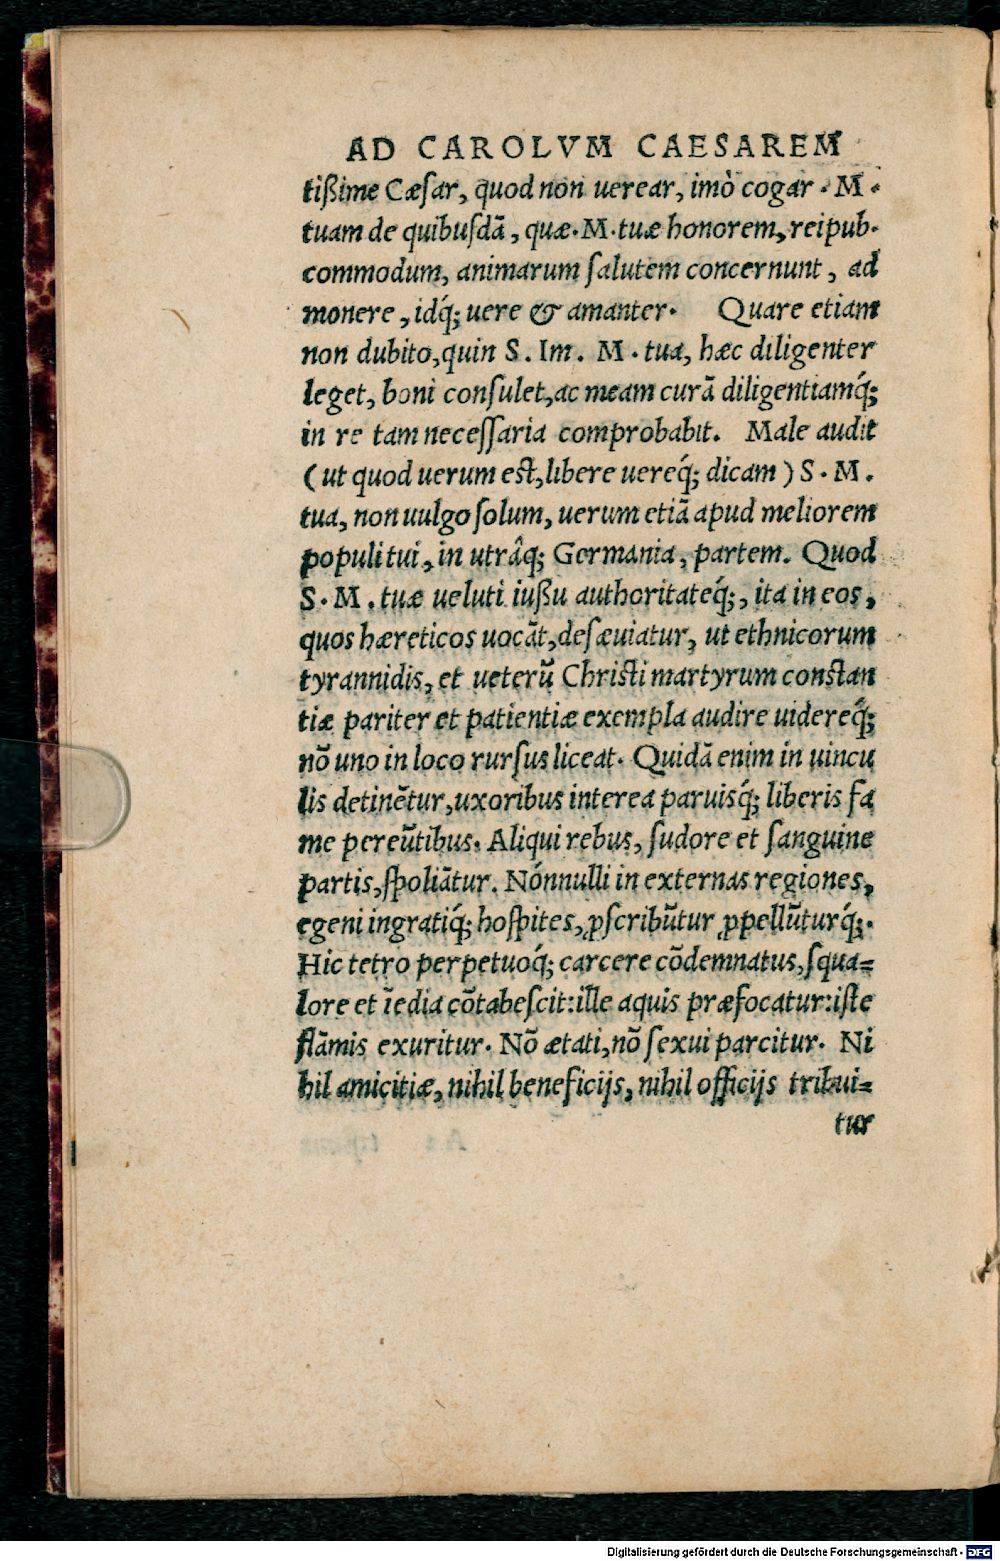 AD CAROLVM CAESAREM
tißime Cæſar, quod non uerear, imò cogar . M .
tuam de quibuſdā, quæ. M. tuæ honorem, reipub.
commodum, animarum ſalutem concernunt, ad
monere, idq́; uere & amanter. Quare etiam
non dubito, quin S. Im. M. tua, hæc diligenter
leget, boni conſulet, ac meam curā diligentiamq́;
in re tam neceſſaria comprobabit. Male audit
( ut quod uerum est, libere uereq́; dicam ) S. M.
tua, non uulgo ſolum, uerum etiā apud meliorem
populi tui, in utrâq; Germania, partem. Quod
S. M. tuæ ueluti iußu authoritateq́;, ita in eos,
quos hæreticos uocāt, deſæuiatur, ut ethnicorum
tyrannidis, et ueterū Christi martyrum constan
tiæ pariter et patientiæ exempla audire uidereq́;
nō uno in loco rurſus liceat. Quidā enim in uincu
lis detinētur, uxoribus interea paruisq́; liberis fa
me pereūtibus. Aliqui rebus, ſudore et ſanguine
partis, ſpoliātur. Nónnulli in externas regiones,
egeni ingratiq́; hoſpites, ꝓſcribūtur ꝓpellūturq́;.
Hic tetro perpetuoq́; carcere cōdemnatus, ſqua=
lore et īedia cōtabeſcit: ille aquis præfocatur: iste
flāmis exuritur. Nō ætati, nō ſexui parcitur. Ni
hil amicitiæ, nihil beneficijs, nihil officijs tribui=
tur
Digitalisierung gefördert durch die Deutsche Forschungsgemeinschaft - DFG